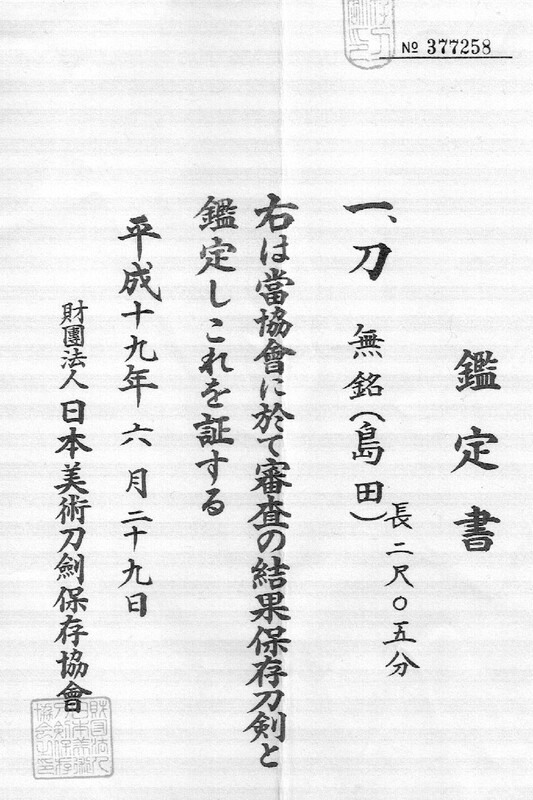 № 377258
鑑定書
一、刀 無銘(島田)
長二尺〇五分
右は當協會に於て審査の結果保存刀剣と
鑑定しこれを証する
平成十九年六月二十九日
財團法人 日本美術刀劍保存協會